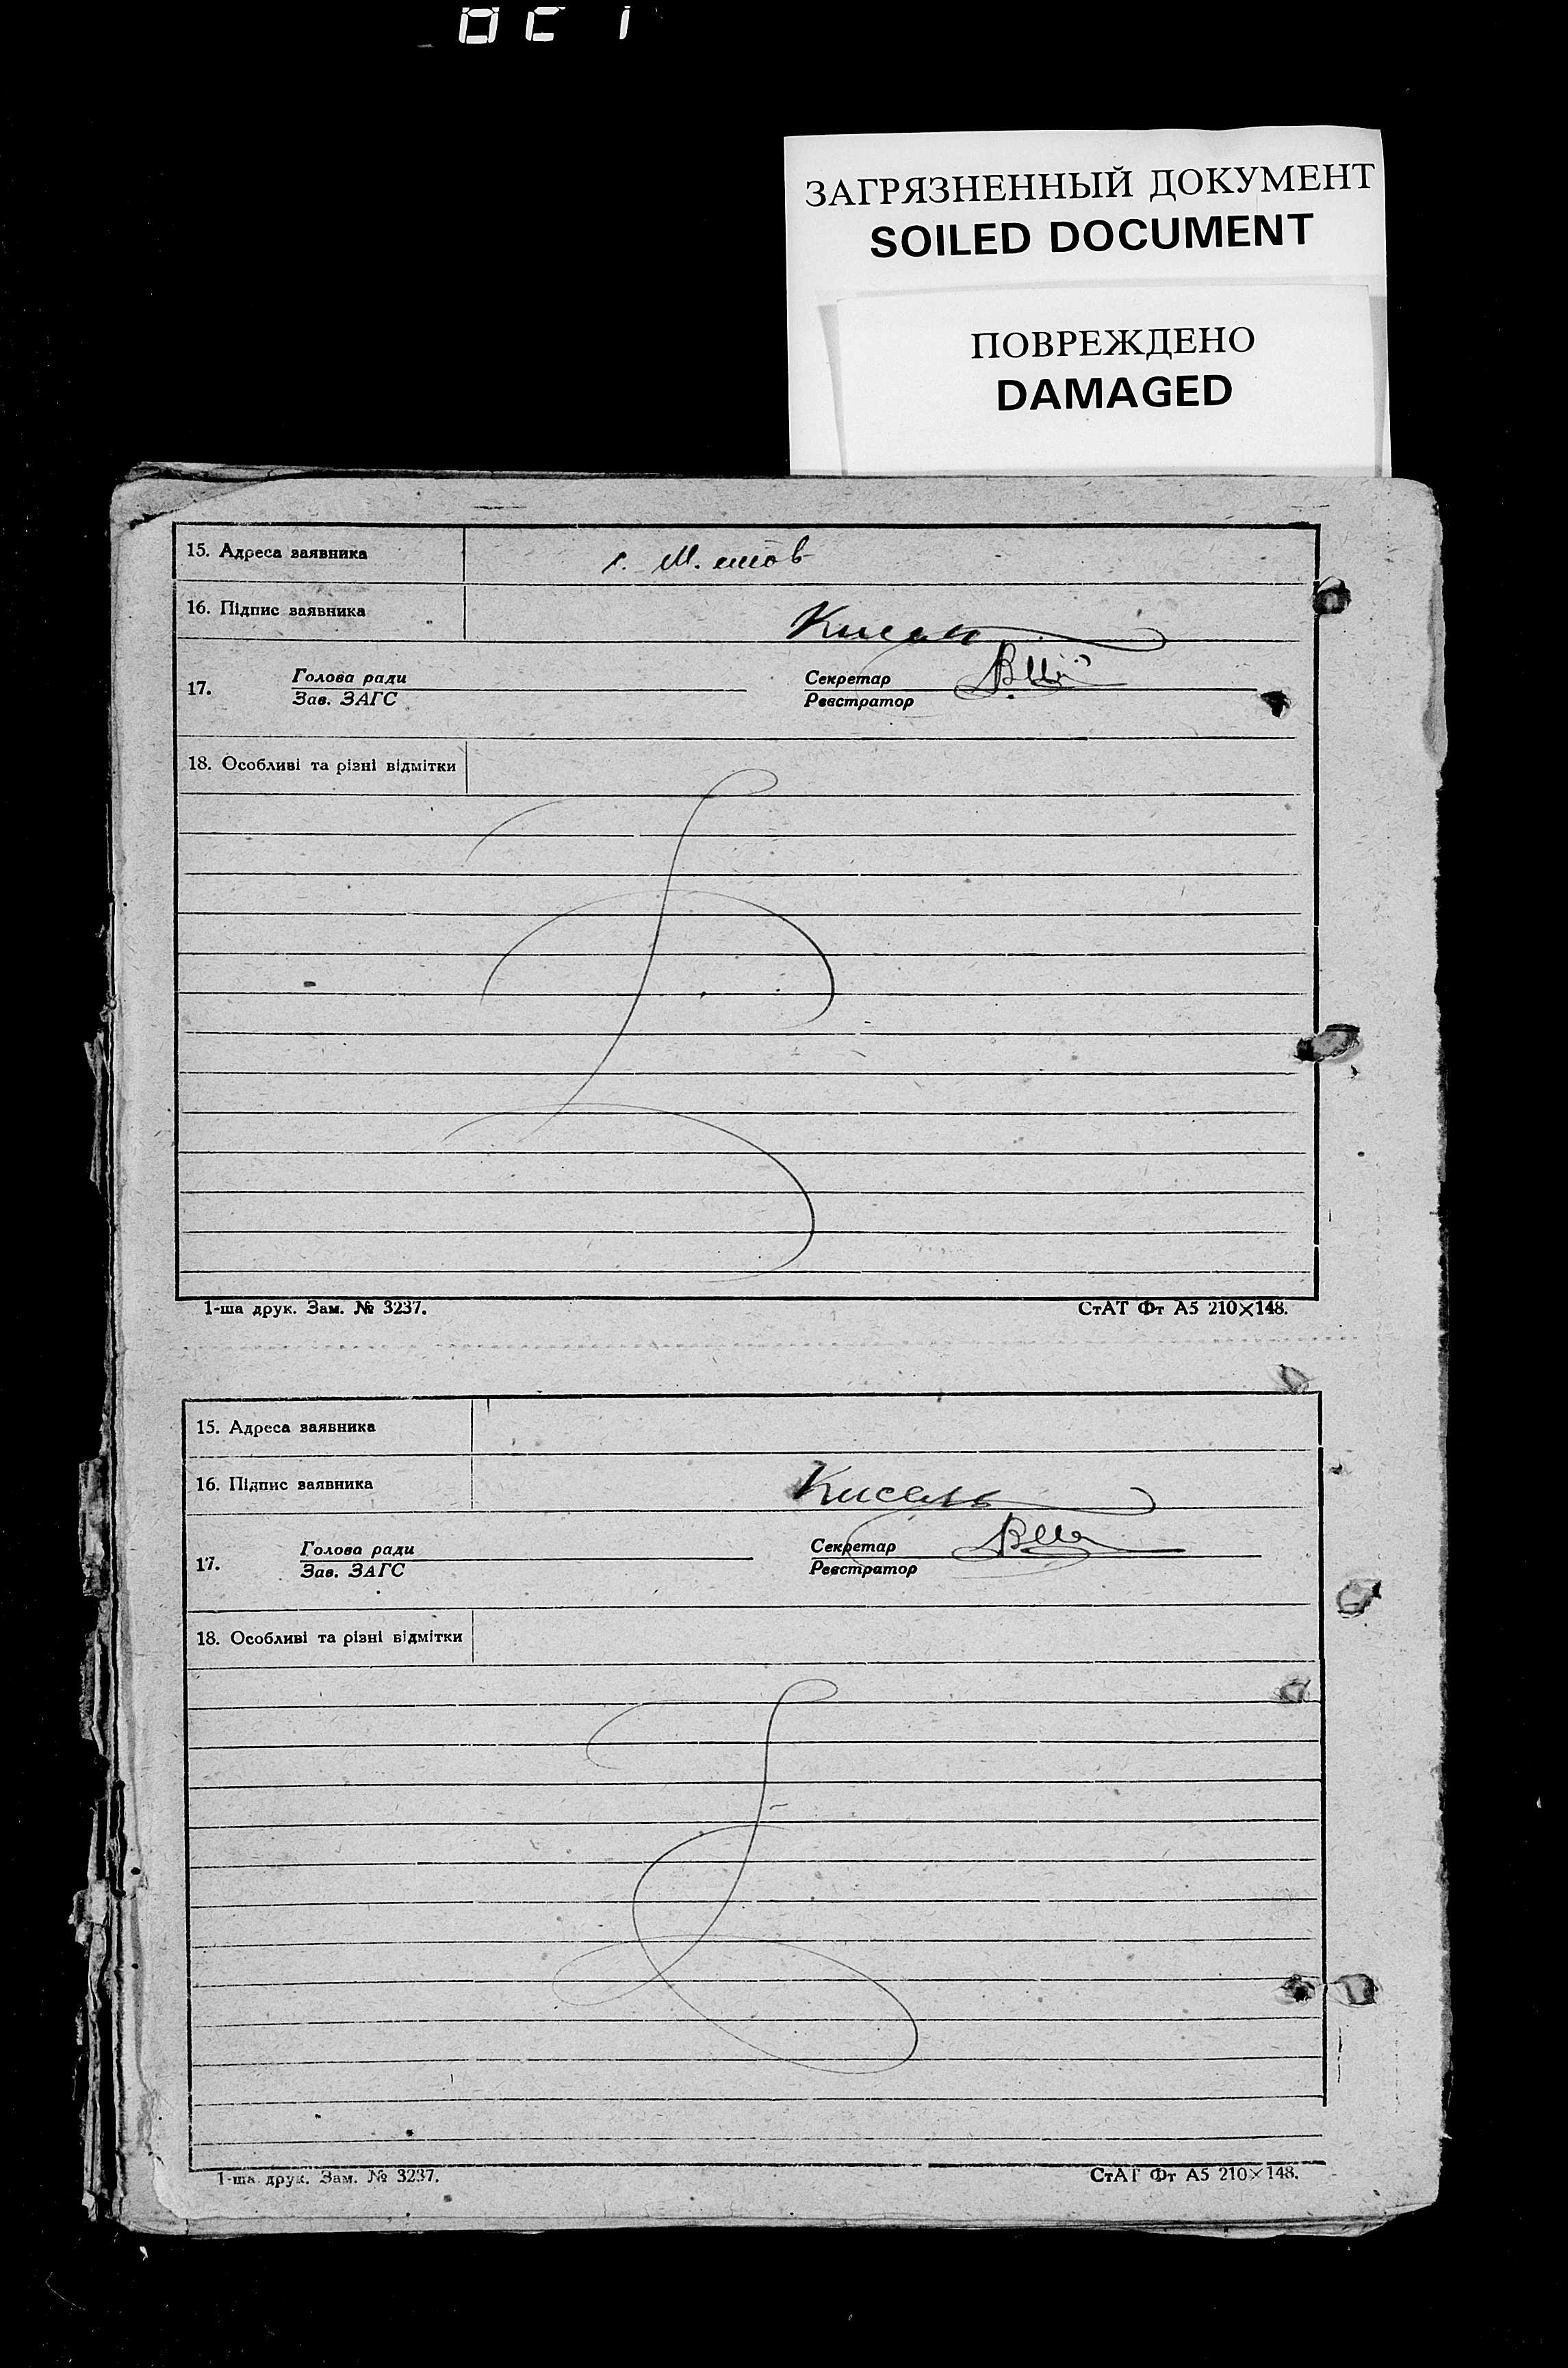 ЗАГРЯЗНЕННЫЙ ДОКУМЕНТ
SOILED DOCUMENT
ПОВРЕЖДЕНО
DAMAGED
15. Адреса заявника
16. Підпис заявника
17. Голова ради Секретар
Зав. ЗАГС Реєстратор
18. Особливі та різні відмітки
1-ша друк. Зам. № 3237. СтАТ Фт А5 210×148.
15. Адреса заявника
16. Підпис заявника Кисель
17. Голова ради Секретар
Зав. ЗАГС Реєстратор
18. Особливі та різні відмітки
1-ша друк. Зам. № 3237. СтАТ Фт А5 210×148.